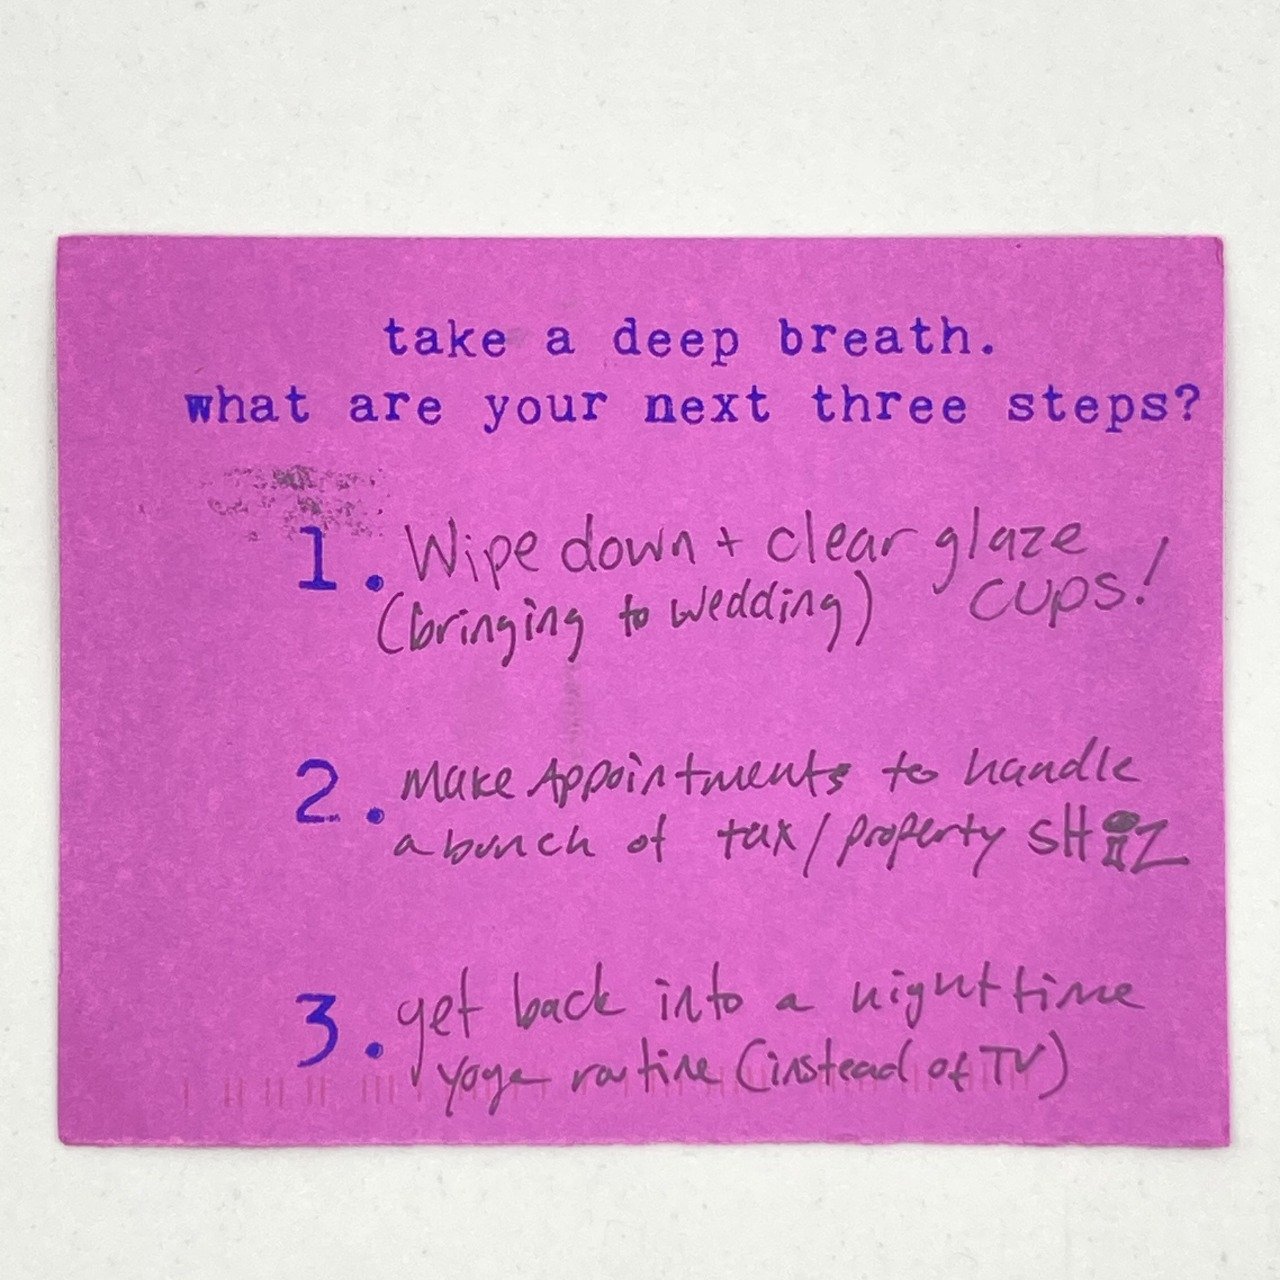 take a deep breath.
what are your next three steps?
1. Wipe down + clear glaze
cups!
(bringing to wedding)
2. Make Appointments to handle
a bunch of tax/property SHiZ
3. get back into a nighttime
yoga routine (instead of TV)